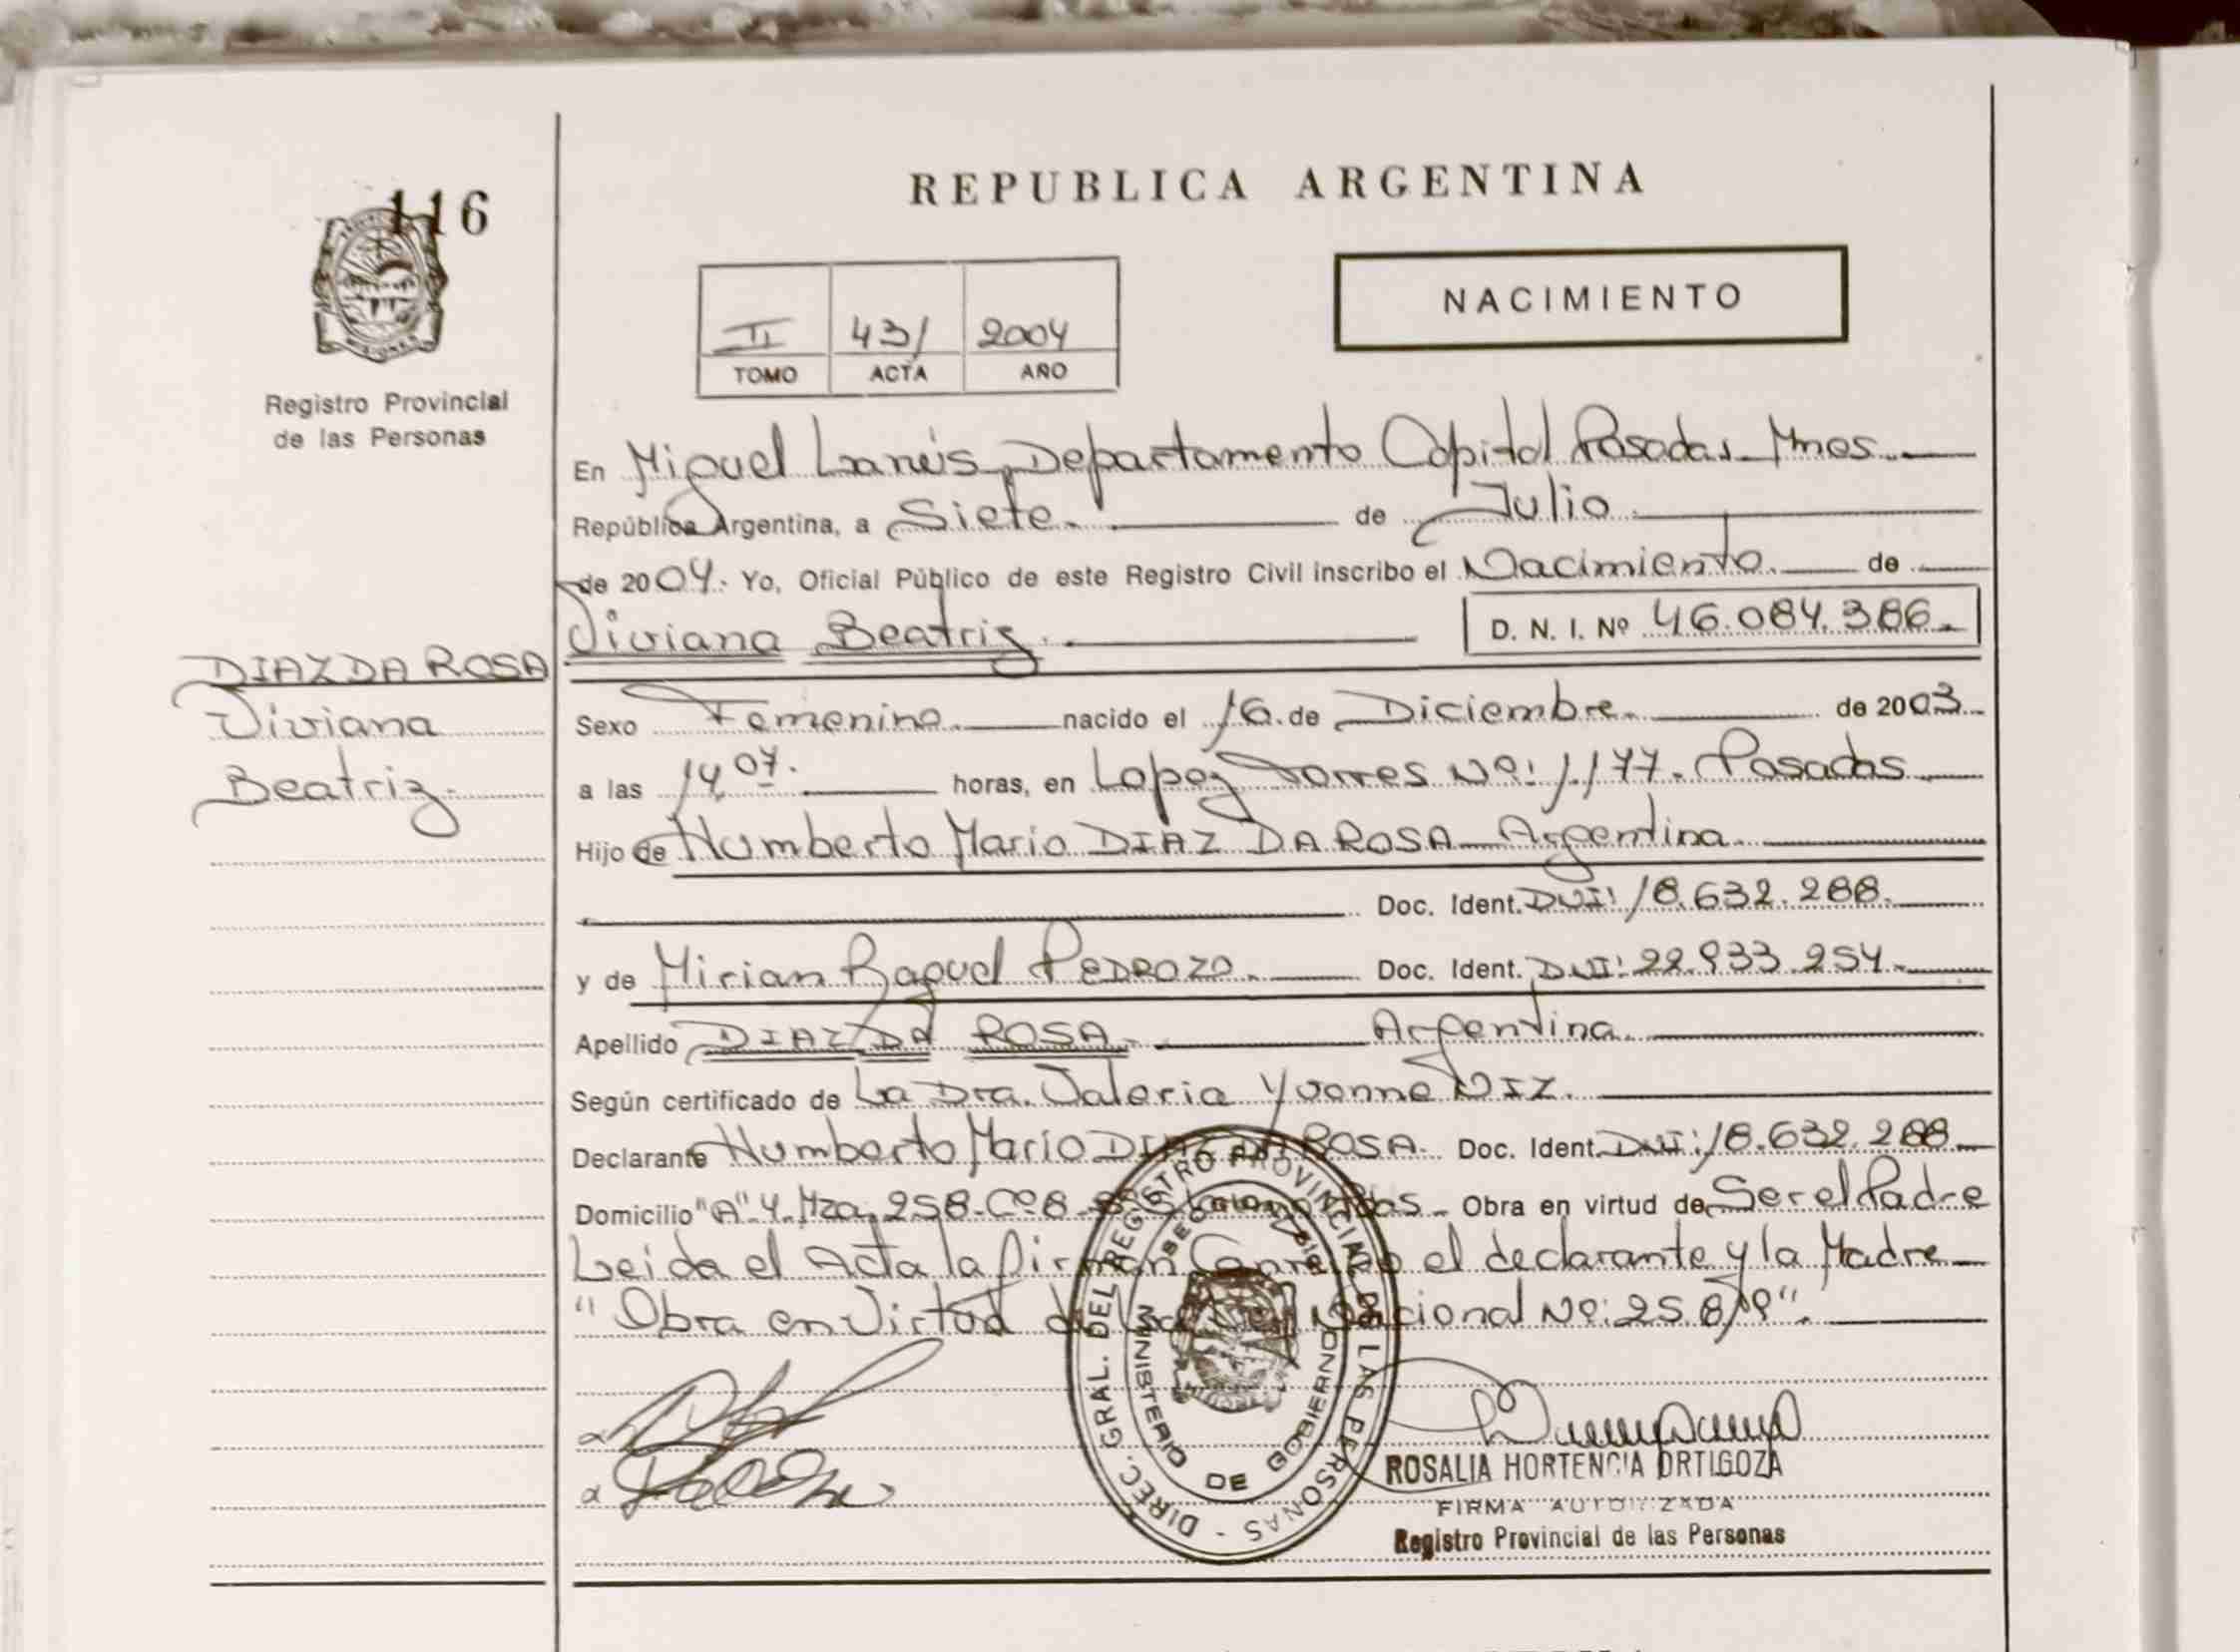 116
REPUBLICA ARGENTINA
NACIMIENTO
II 43/ 2004
TOMO ACTA AÑO
Registro Provincial
de las Personas
En Miguel Lanús, Departamento Capital Posadas Mnes.
República Argentina, a Siete. de Julio
de 2004. Yo, Oficial Público de este Registro Civil inscribo el Nacimiento. de
Viviana Beatriz. D. N. I. Nº 46.084.386.
DIAZ DA ROSA
Viviana
Beatriz.
Sexo Femenino. nacido el 16. de Diciembre. de 2003
a las 14 07. horas, en Lopez Torres Nº: 1177. Posadas
Hijo de Humberto Mario DIAZ DA ROSA Argentina.
Doc. Ident. DNI: 18.632.288.
y de Mirian Raquel PEDROZO. Doc. Ident. DNI: 22.933.254.
Apellido DIAZ DA ROSA. Argentina.
Según certificado de La Dra. Valeria Yvonne VIZ.
Declarante Humberto Mario DIAZ DA ROSA. Doc. Ident. DNI: 18.632.288.
Domicilio "A" 4. Mza. 258. Cº 8 Pdas. Obra en virtud de Ser el Padre
Leida el Acta la firman Conmigo el declarante y la Madre
"Obra en Virtud de La Ley Nacional Nº: 25.819".
DIREC. GRAL. DEL REGISTRO PROVINCIAL DE LAS PERSONAS
MINISTERIO DE GOBIERNO
ROSALIA HORTENCIA ORTIGOZA
FIRMA AUTORIZADA
Registro Provincial de las Personas